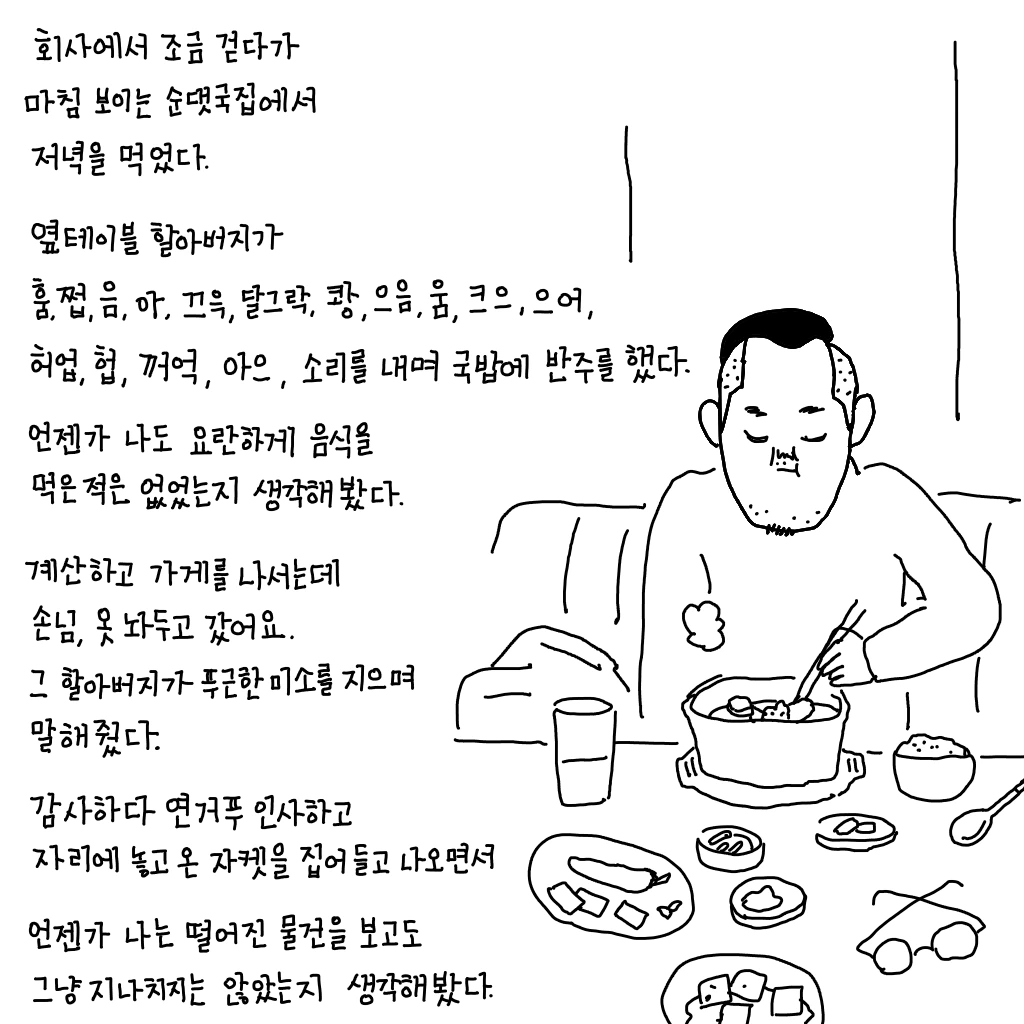 회사에서 조금 걷다가
마침 보이는 순댓국집에서
저녁을 먹었다.
옆테이블 할아버지가
훔, 쩝, 음, 아, 끄윽, 달그락, 쾅, 으음, 움, 크으, 으어,
허업, 헙, 꺼억, 아으, 소리를 내며 국밥에 반주를 했다.
언젠가 나도 요란하게 음식을
먹은 적은 없었는지 생각해 봤다.
계산하고 가게를 나서는데
손님, 옷 놔두고 갔어요.
그 할아버지가 푸근한 미소를 지으며
말해줬다.
감사하다 연거푸 인사하고
자리에 놓고 온 자켓을 집어 들고 나오면서
언젠가 나는 떨어진 물건을 보고도
그냥 지나치지는 않았는지 생각해 봤다.